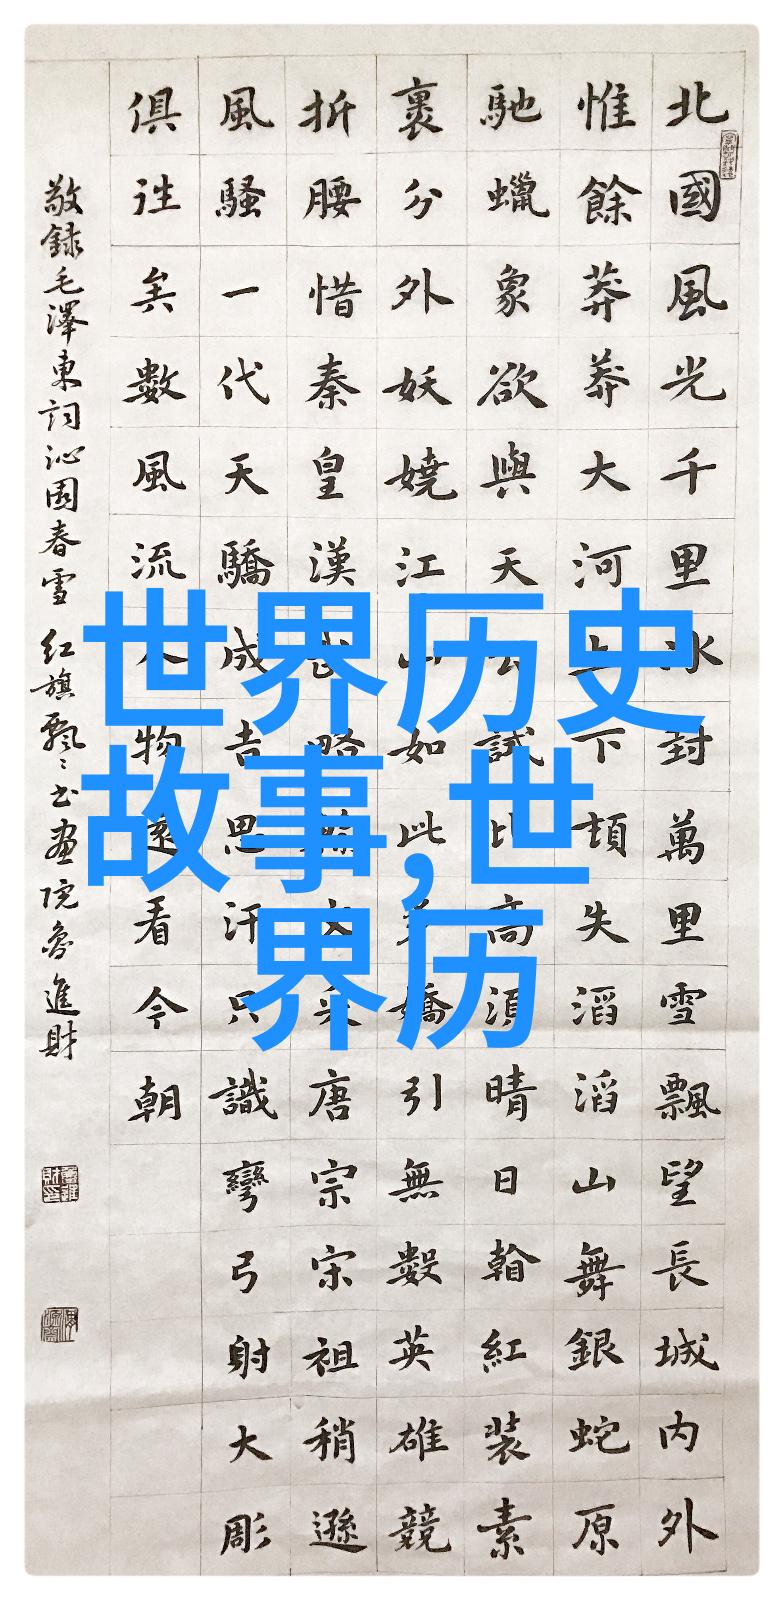 北國風光千里冰封萬里雪飄望長城內外
惟餘莽莽大河上下頓失滔滔山舞銀蛇原
馳蠟象欲與天公試比高須晴日看紅裝素
裹分外妖嬈江山如此多嬌引無數英雄競
折腰惜秦皇漢武略輸文采唐宗宋祖稍遜
風騷一代天驕成吉思汗只識彎弓射大彫
俱往矣數風流人物還看今朝
敬録毛澤東詞沁園春雪 紅旗飄〻書畫院魯進財
世界历史
故事,世
界历